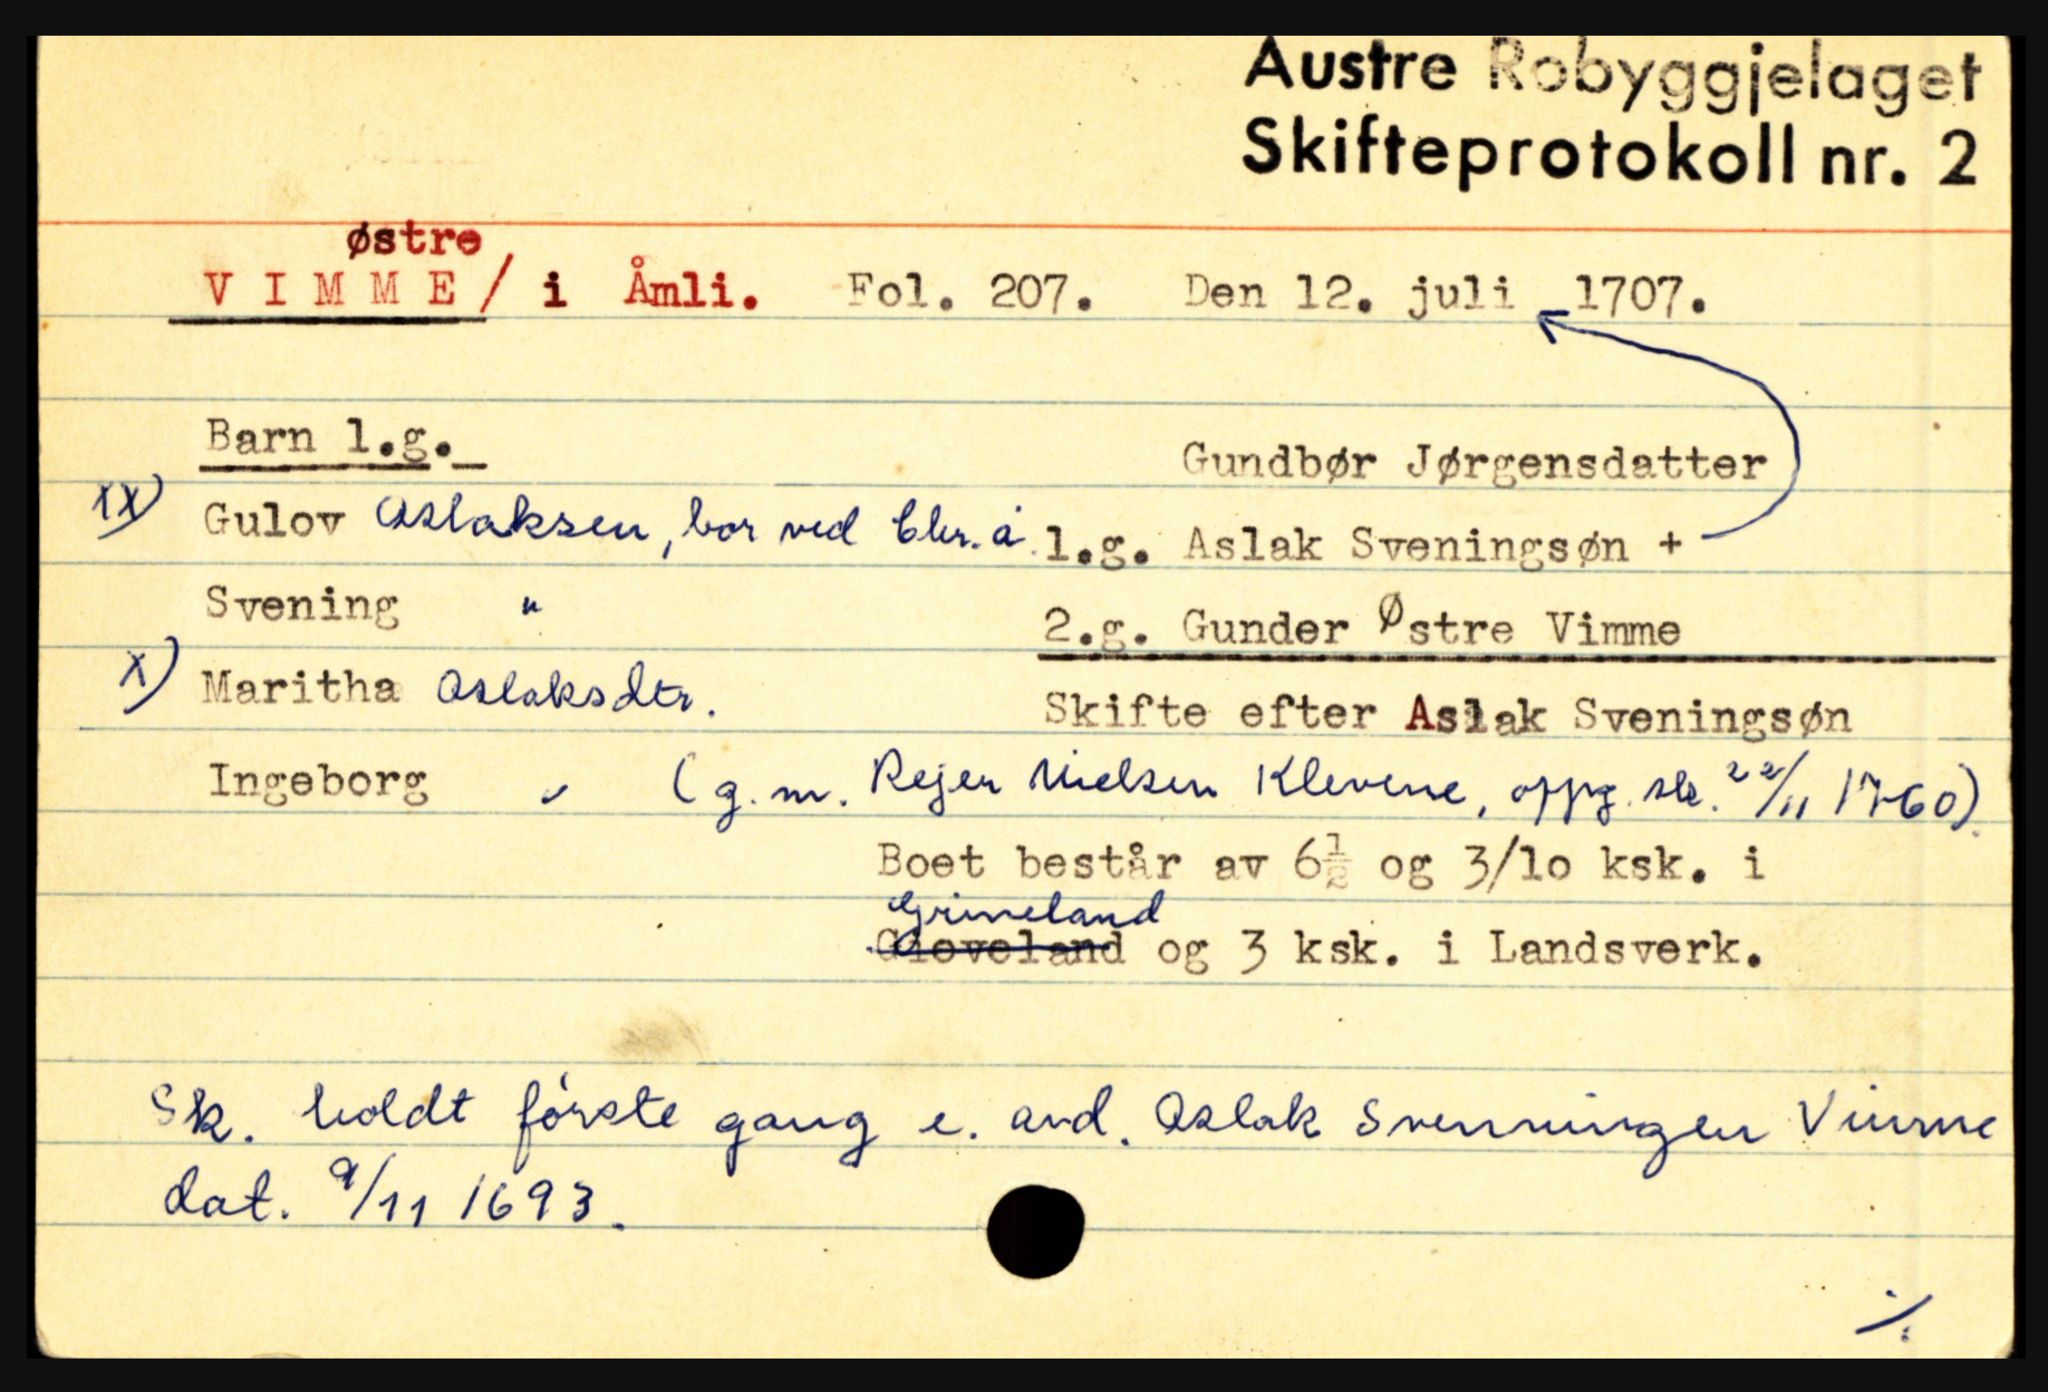 Austre Robyggjelaget
Skifteprotokoll nr. 2
østre
VIMME / i Åmli. Fol. 207. Den 12. juli 1707.
Barn 1.g.
Gundbør Jørgensdatter
xx) Gulov Aslaksen, bor ved Chr.a. 1.g. Aslak Sveningsøn +
Svening "
2.g. Gunder Østre Vimme
x) Maritha Aslaksdtr.
Skifte efter Aslak Sveningsøn
Ingeborg " (g.m. Rejer Nielsen Klevene, oppg. sk. 22/11 1760).
Boet består av 6½ og 3/10 ksk. i
Grimeland
Gloveland og 3 ksk. i Landsverk.
Sk. holdt første gang e. avd. Aslak Svenningen Vimme
dat. 9/11 1693.
./.